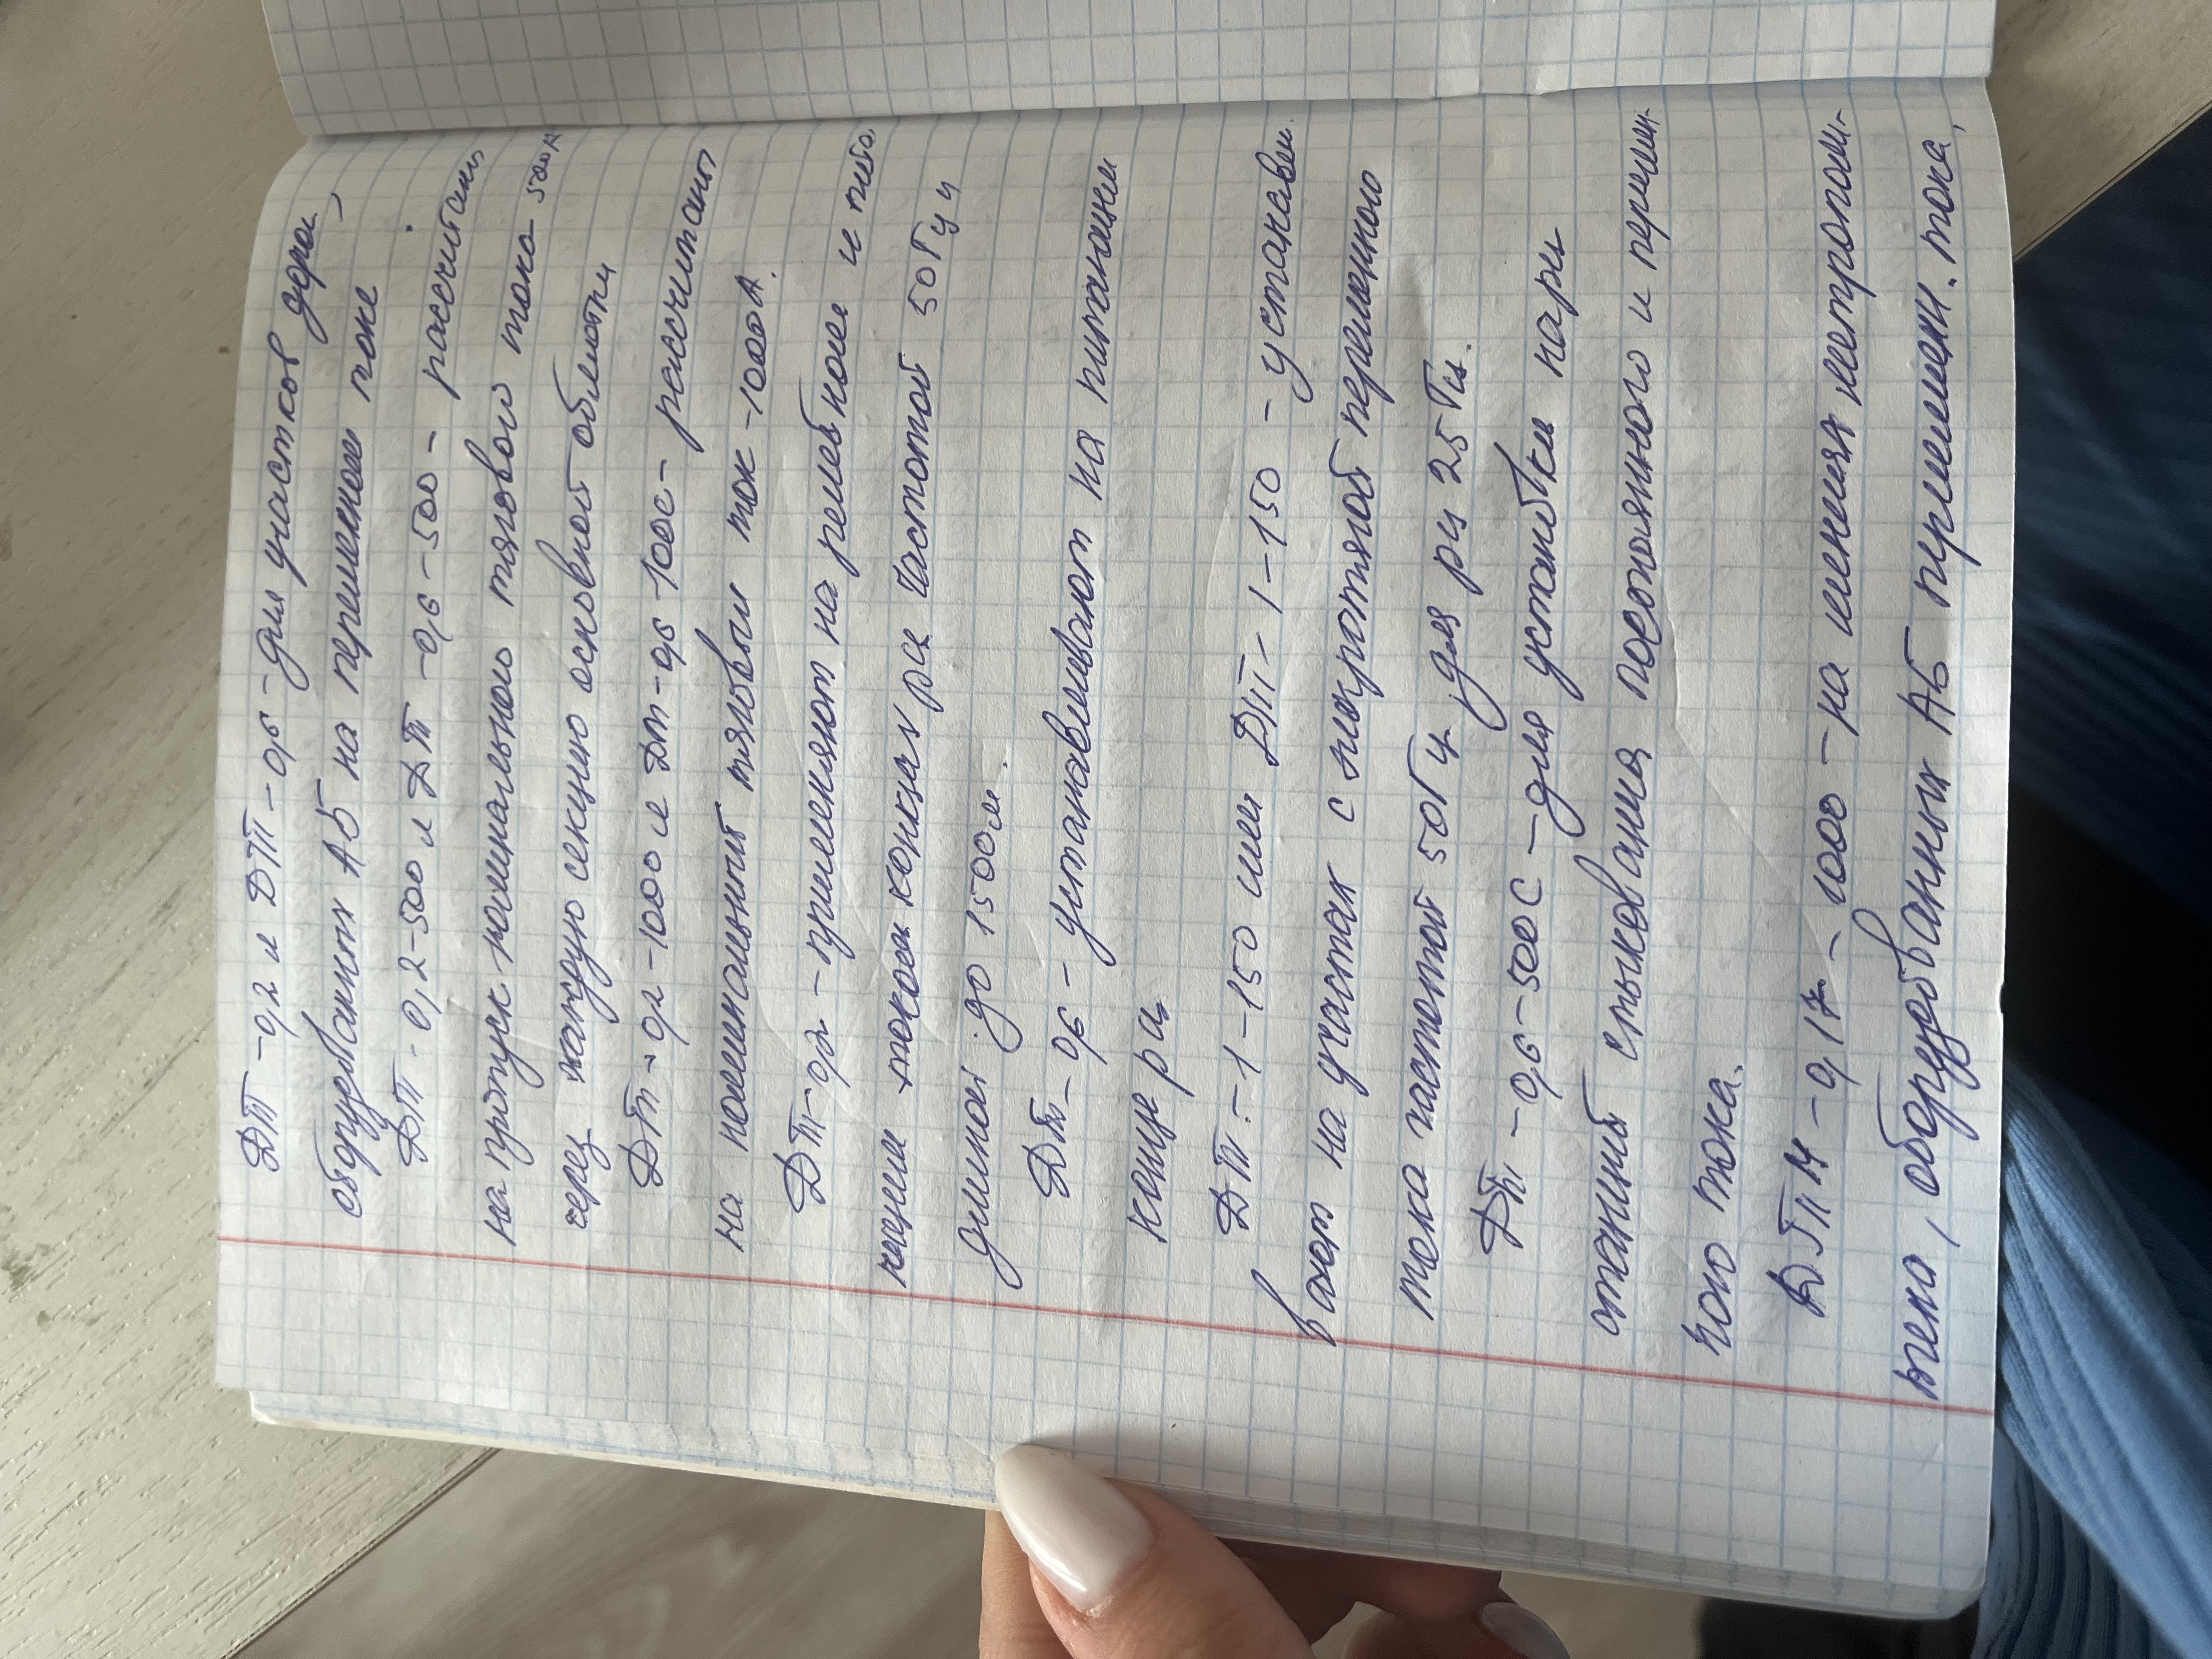 ДТ-0,2 и ДТ-0,6 - для участков дорог,
оборудованных АБ на переменном токе
ДТ-0,2-500 и ДТ-0,6-500- рассчитаны
на пропуск номинального тягового тока 500А
через каждую секцию основной обмотки
ДТ-0,2-1000 и ДТ-0,6-1000- рассчитаны
на номинальный тяговый ток -1000А.
ДТ-0,2 - применяют на релейном и пита
ющем концах рц частотой 50Гц и
длиной до 1500м.
ДТ-0,6 - устанавливают на питающем
конце рц
ДТ-1-150 или ДТ-1-150 - устанавли
вают на участках с электротягой переменного
тока частотой 50Гц для рц 25Гц.
ДТ-0,6-500С - для установки на рц
станций стыкования постоянного и перемен-
ного тока.
ДТМ-0,17-1000 - на линиях метрополи-
тена, оборудованных АБ переменн. тока,